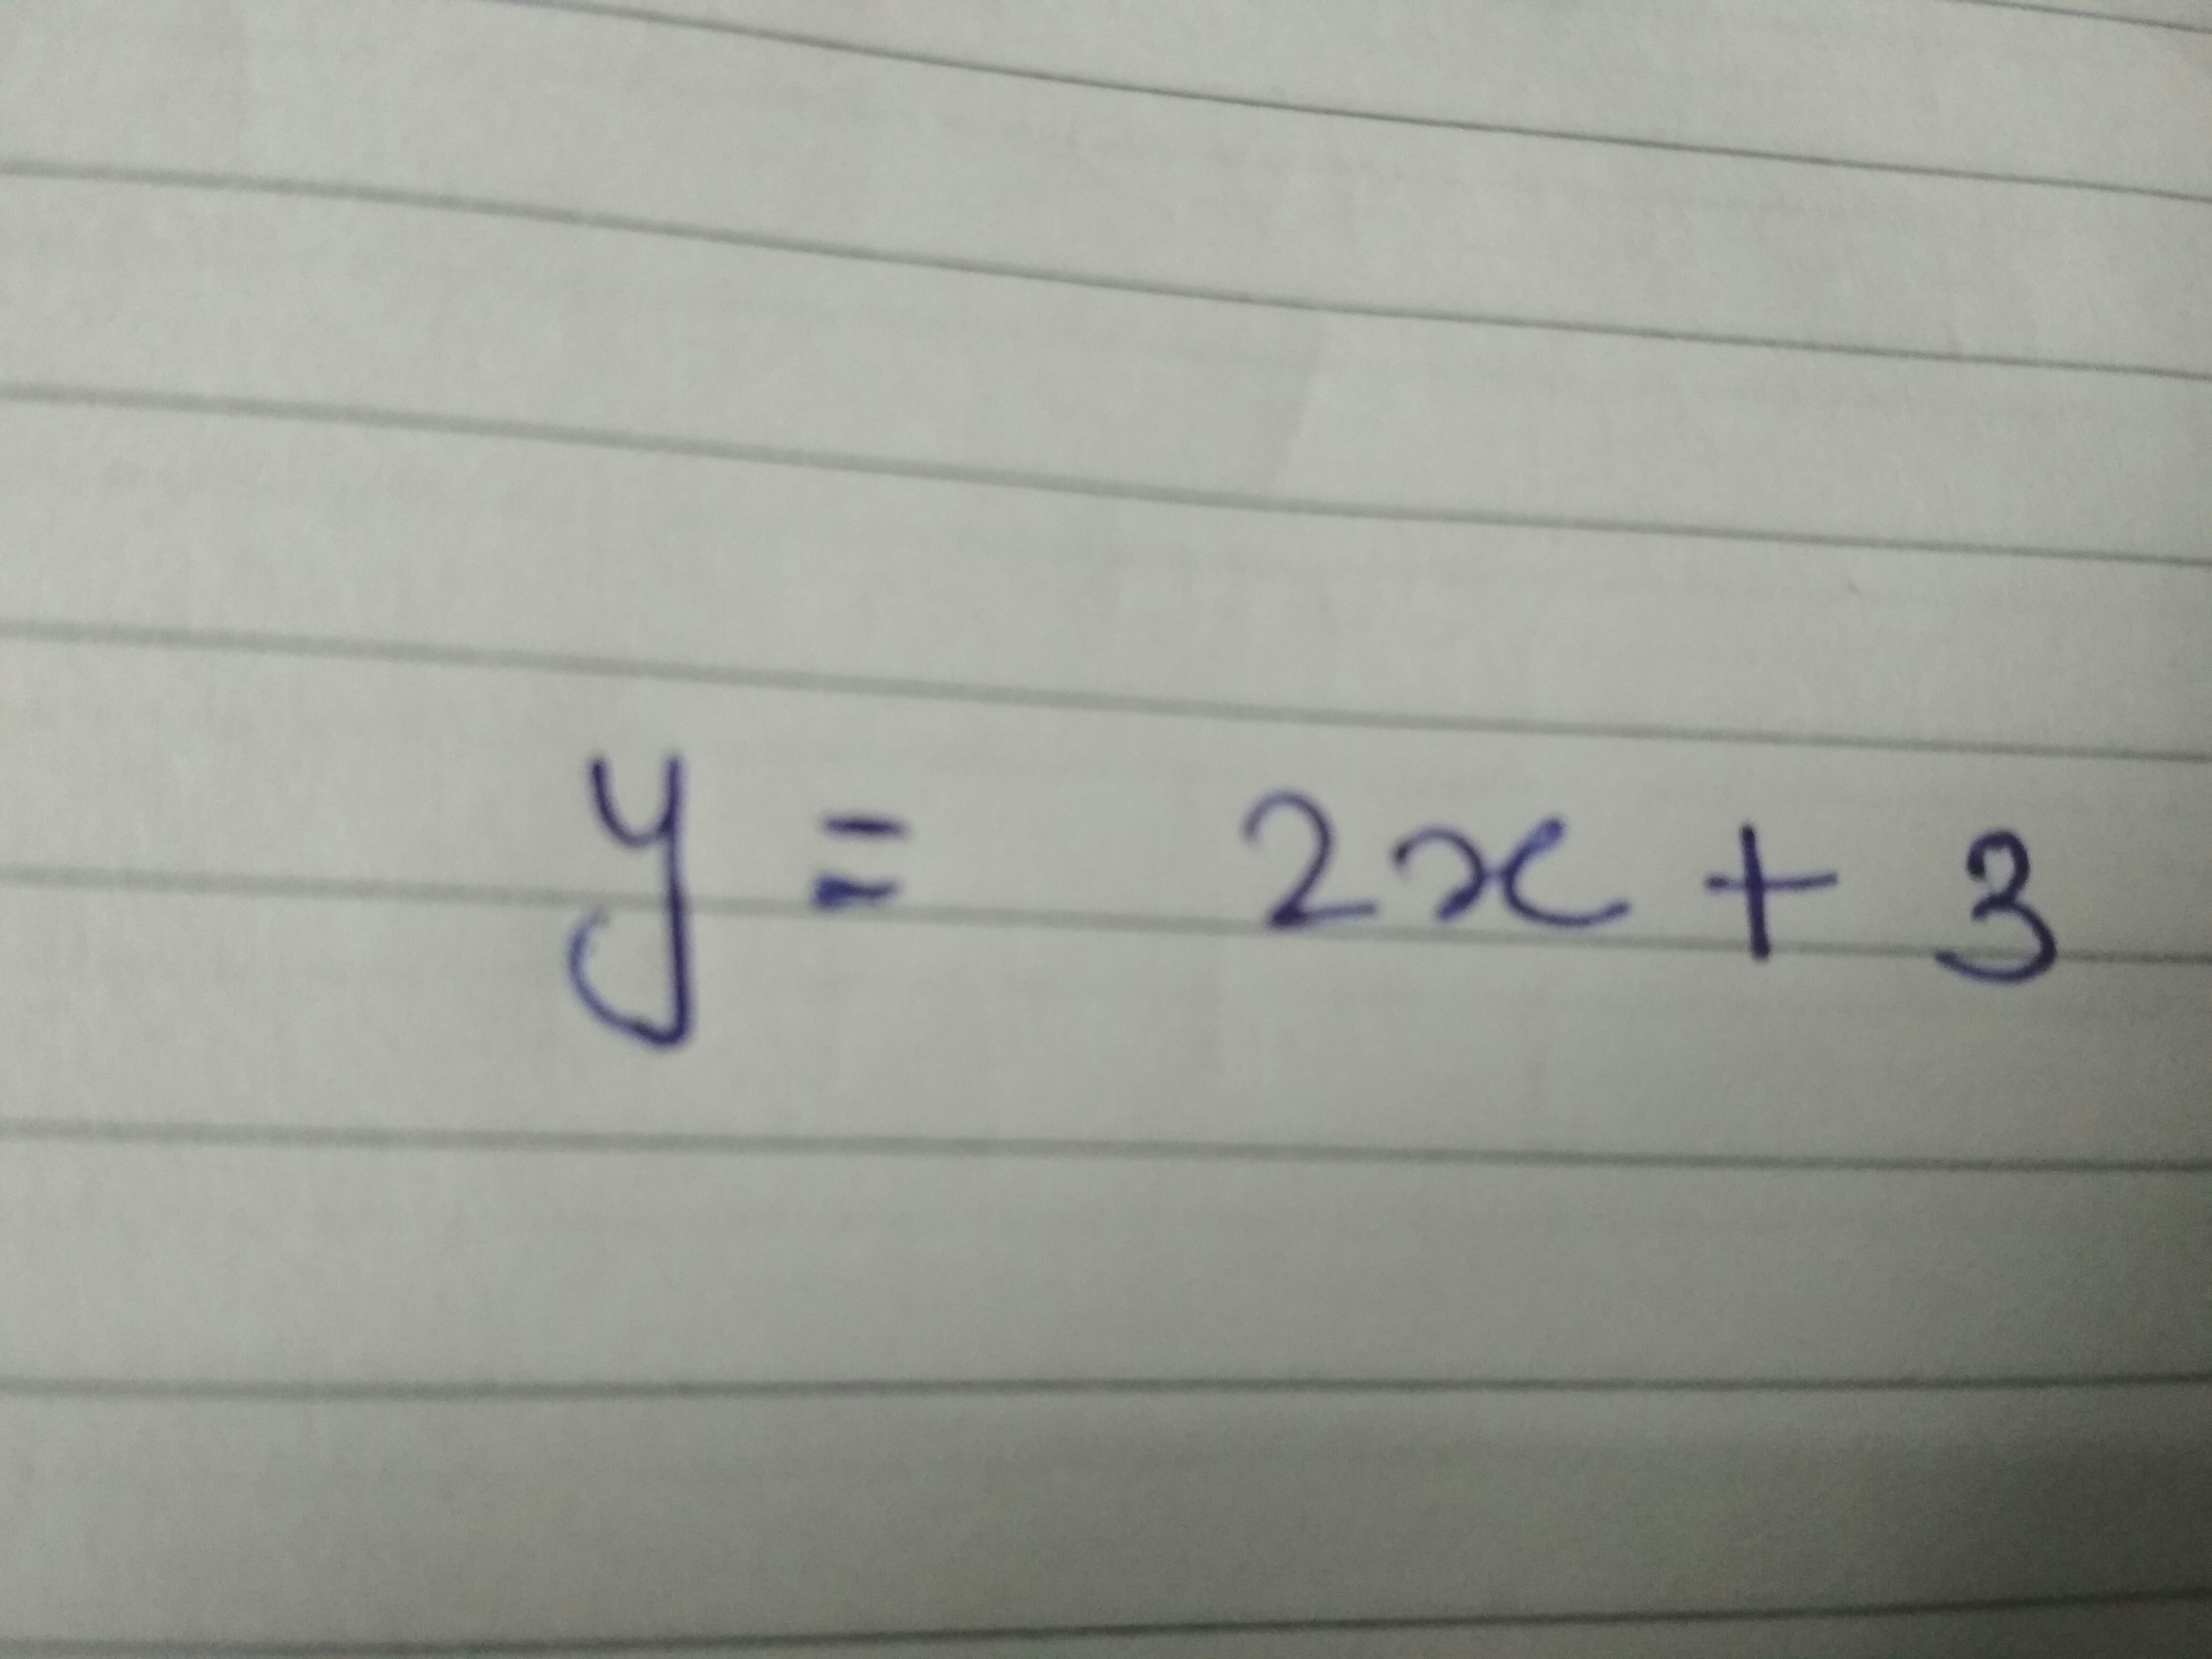 y = 2x + 3